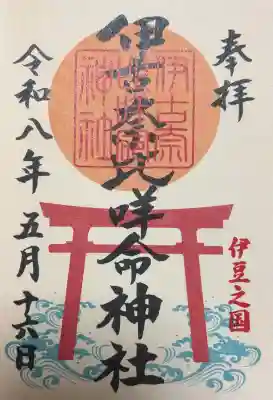 奉拝
伊古奈比咩命神社
伊古奈
神社
伊豆之国
令和八年 五月十六日